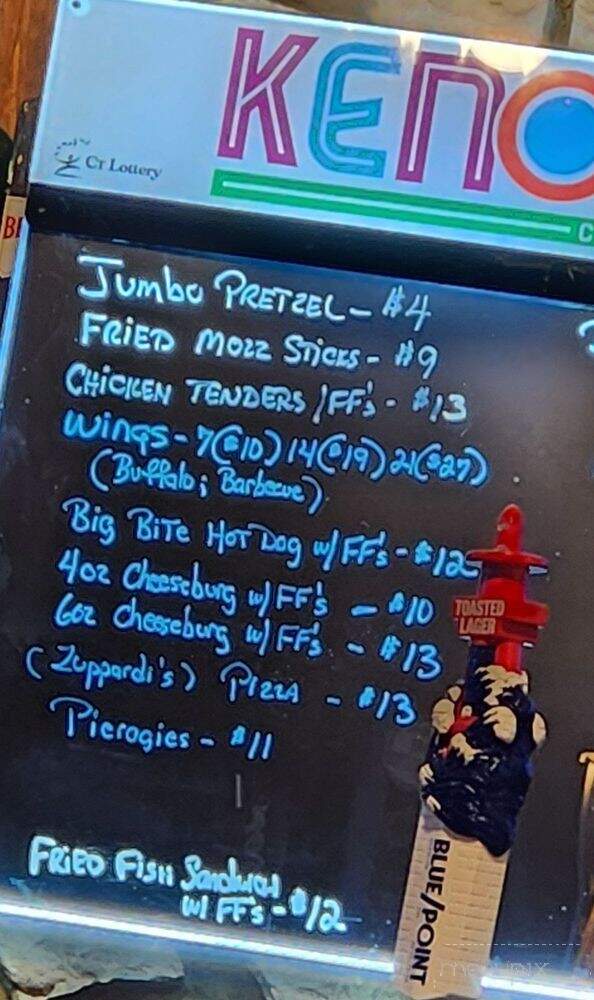 KENO
CT Lottery
C
BI
Jumbo PRETZEL - $4
FRIED MOZZ STICKS - $9
CHICKEN TENDERS /FF's - $13
WINGS - 7($10) 14($19) 21($27)
(Buffalo; Barbecue)
Big BITE HOT Dog w/FF's - $12
4oz Cheeseburg w/FF's - $10
6oz cheeseburg w/FF's - $13
(Zuppardi's) PIZZA - $13
Pierogies - $11
FRIED FISH Sandwich
w/ FF's - $12
TOASTED
LAGER
BLUE/POINT